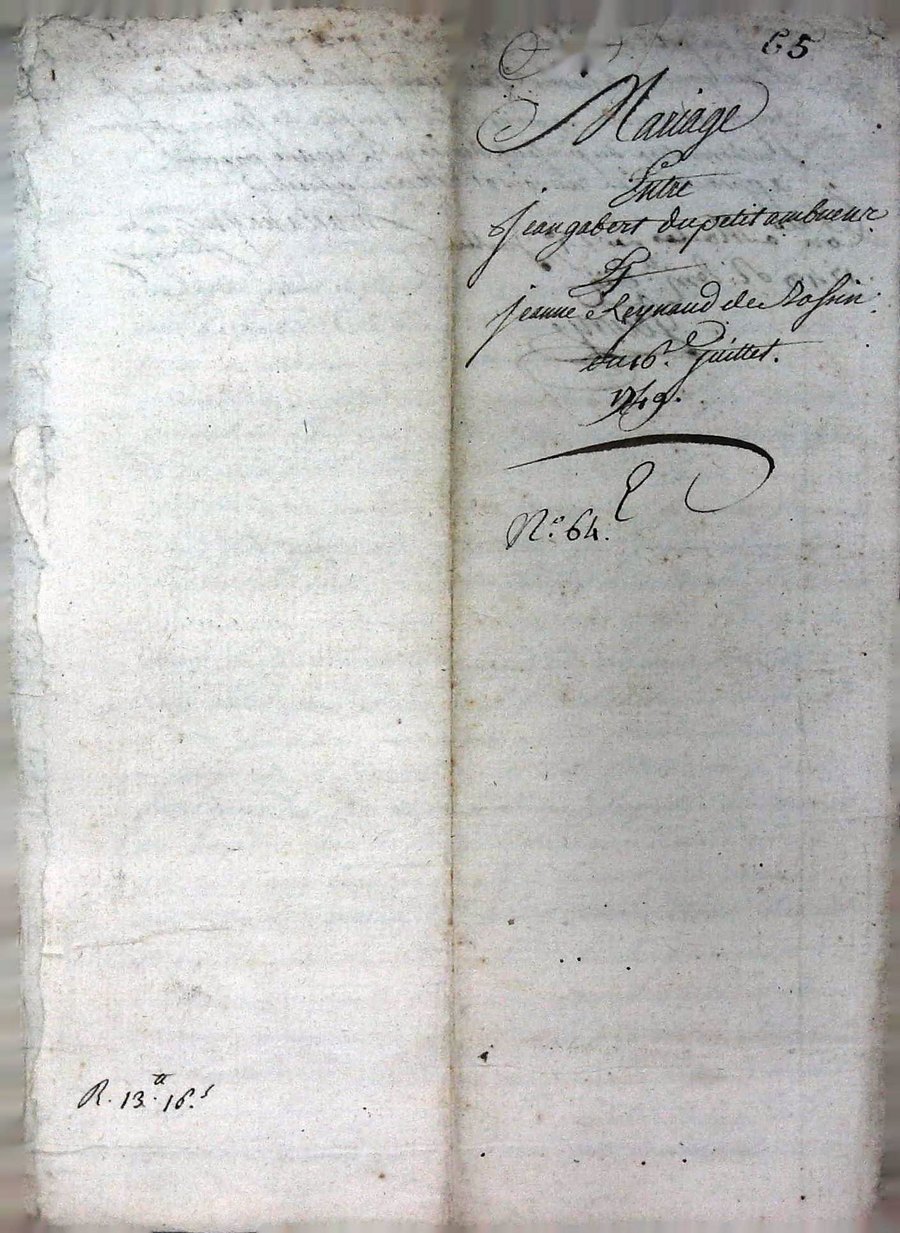 65
Mariage
Entre
jean gabert du petit ambueur
Et
jeanne Reynaud de Rossin.
du 16e. juillet.
1749.
No. 64.
R. 13.tt 16.s